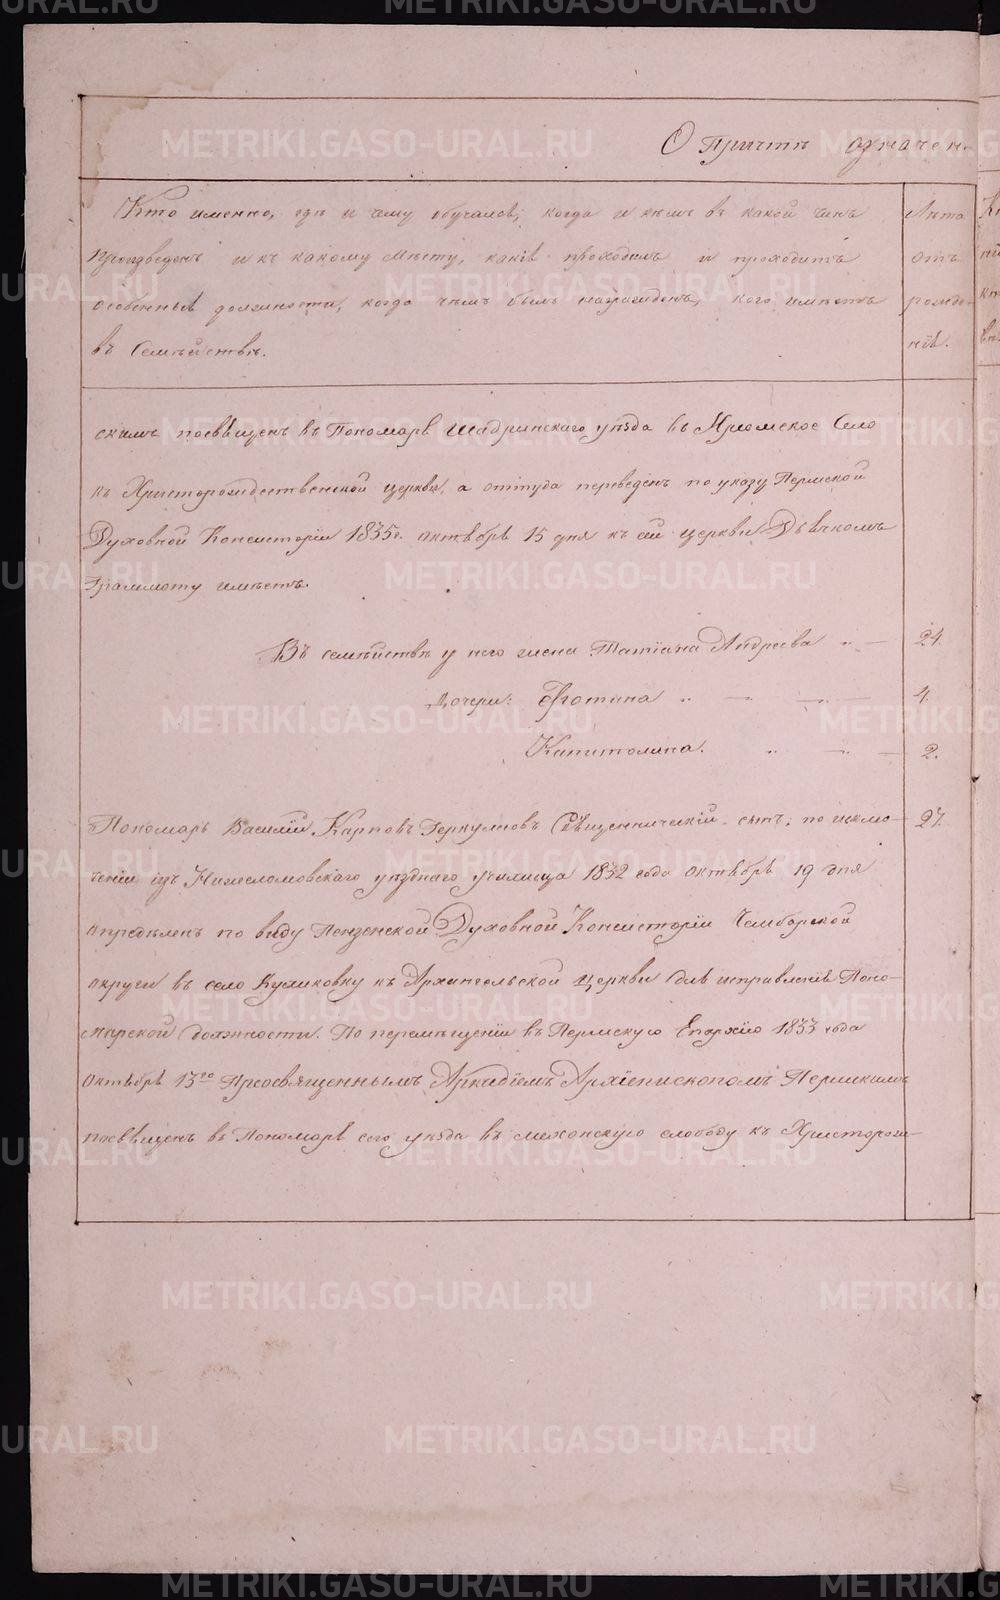 О Причтѣ означен-
Кто именно, гдѣ и чему обучался, когда и кѣмъ въ какой чинъ
произведенъ и къ какому мѣсту, какія проходилъ и проходитъ
особенныя должности, когда чѣмъ былъ награжденъ, кого имѣетъ
въ Семѣйствѣ.
Лѣта
отъ
рожде-
нія.
скимъ посвященъ въ Пономаря Шадринскаго уѣзда въ Село
къ Христорождественской церкви, а оттуда переведенъ по указу Пермской
Духовной Консисторіи 1835 г. октября 15 дня къ сей церкви Дьячкомъ
Граммоту имѣетъ.
Въ семѣйствѣ у него жена Татіана Андреева 24.
Дочери: Фотина 4.
Капитолина. 2.
Пономарь Василій Карповъ Геркулесовъ Священническій сынъ; по исклю- 27.
ченіи изъ Нижеломовскаго уѣзднаго училища 1832 года октября 19 дня
опредѣленъ по виду Пензенской Духовной Консисторіи Чембарской
округи въ село Куликовку къ Архангельской церкви для исправленія Поно-
марской должности. По перемѣщеніи въ Пермскую Епархію 1833 года
октября 13го Преосвященнымъ Аркадіемъ Архіепископомъ Пермскимъ
посвященъ въ Пономаря сего уѣзда въ мехонскую слободу къ Христорож-
METRIKI.GASO-URAL.RU